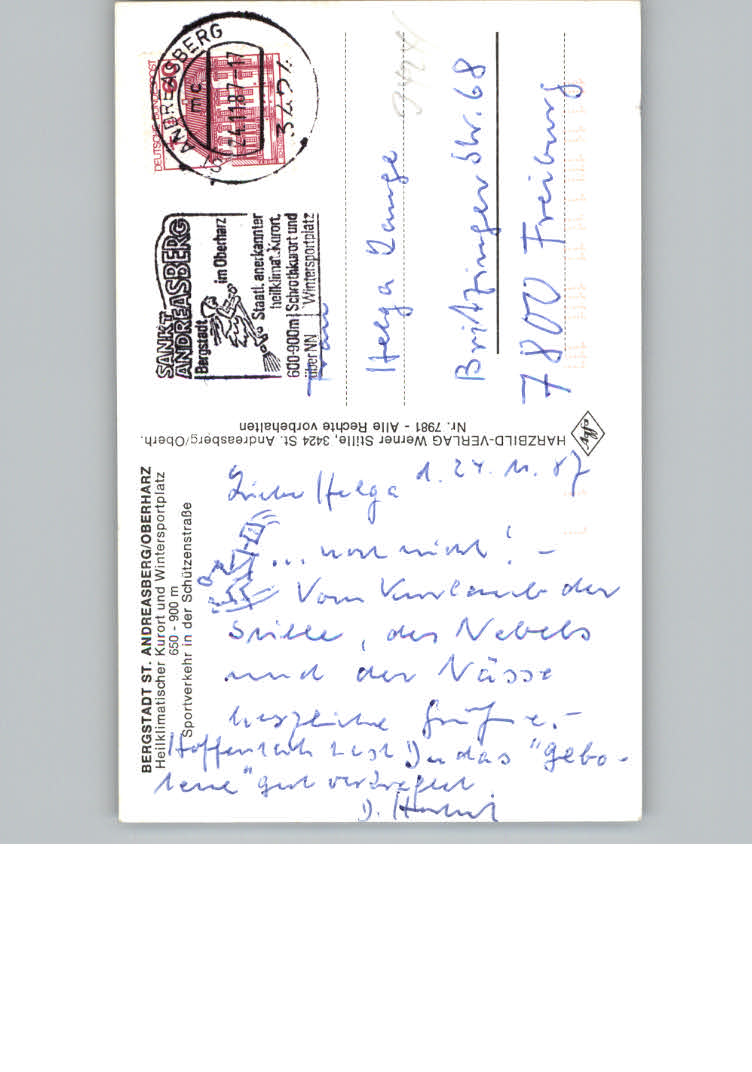 BERGSTADT ST. ANDREASBERG/OBERHARZ
Heilklimatischer Kurort und Wintersportplatz
650 - 900 m
Sportverkehr in der Schützenstraße
Liebe Helga d. 24. 11. 87
... noch nicht! -
Vom Kurlaub der
Stille, des Nebels
und der Nässe
herzliche Grüße.-
Hoffentlich hast Du das "gebo-
tene" gut
D.
HARZBILD-VERLAG Werner Stille, 3424 St. Andreasberg/Oberh.
Nr. 7981 - Alle Rechte vorbehalten
SANKT
ANDREASBERG
Bergstadt im Oberharz
Staatl. anerkannter
heilklimat. Kurort,
600-900m Schrothkurort und
über NN Wintersportplatz
DEUTSCHE BUNDESPOST
ANDREASBERG
mc
24.11.87-17
3424
Frau
Helga Lange
Britzinger Str. 68
7800 Freiburg